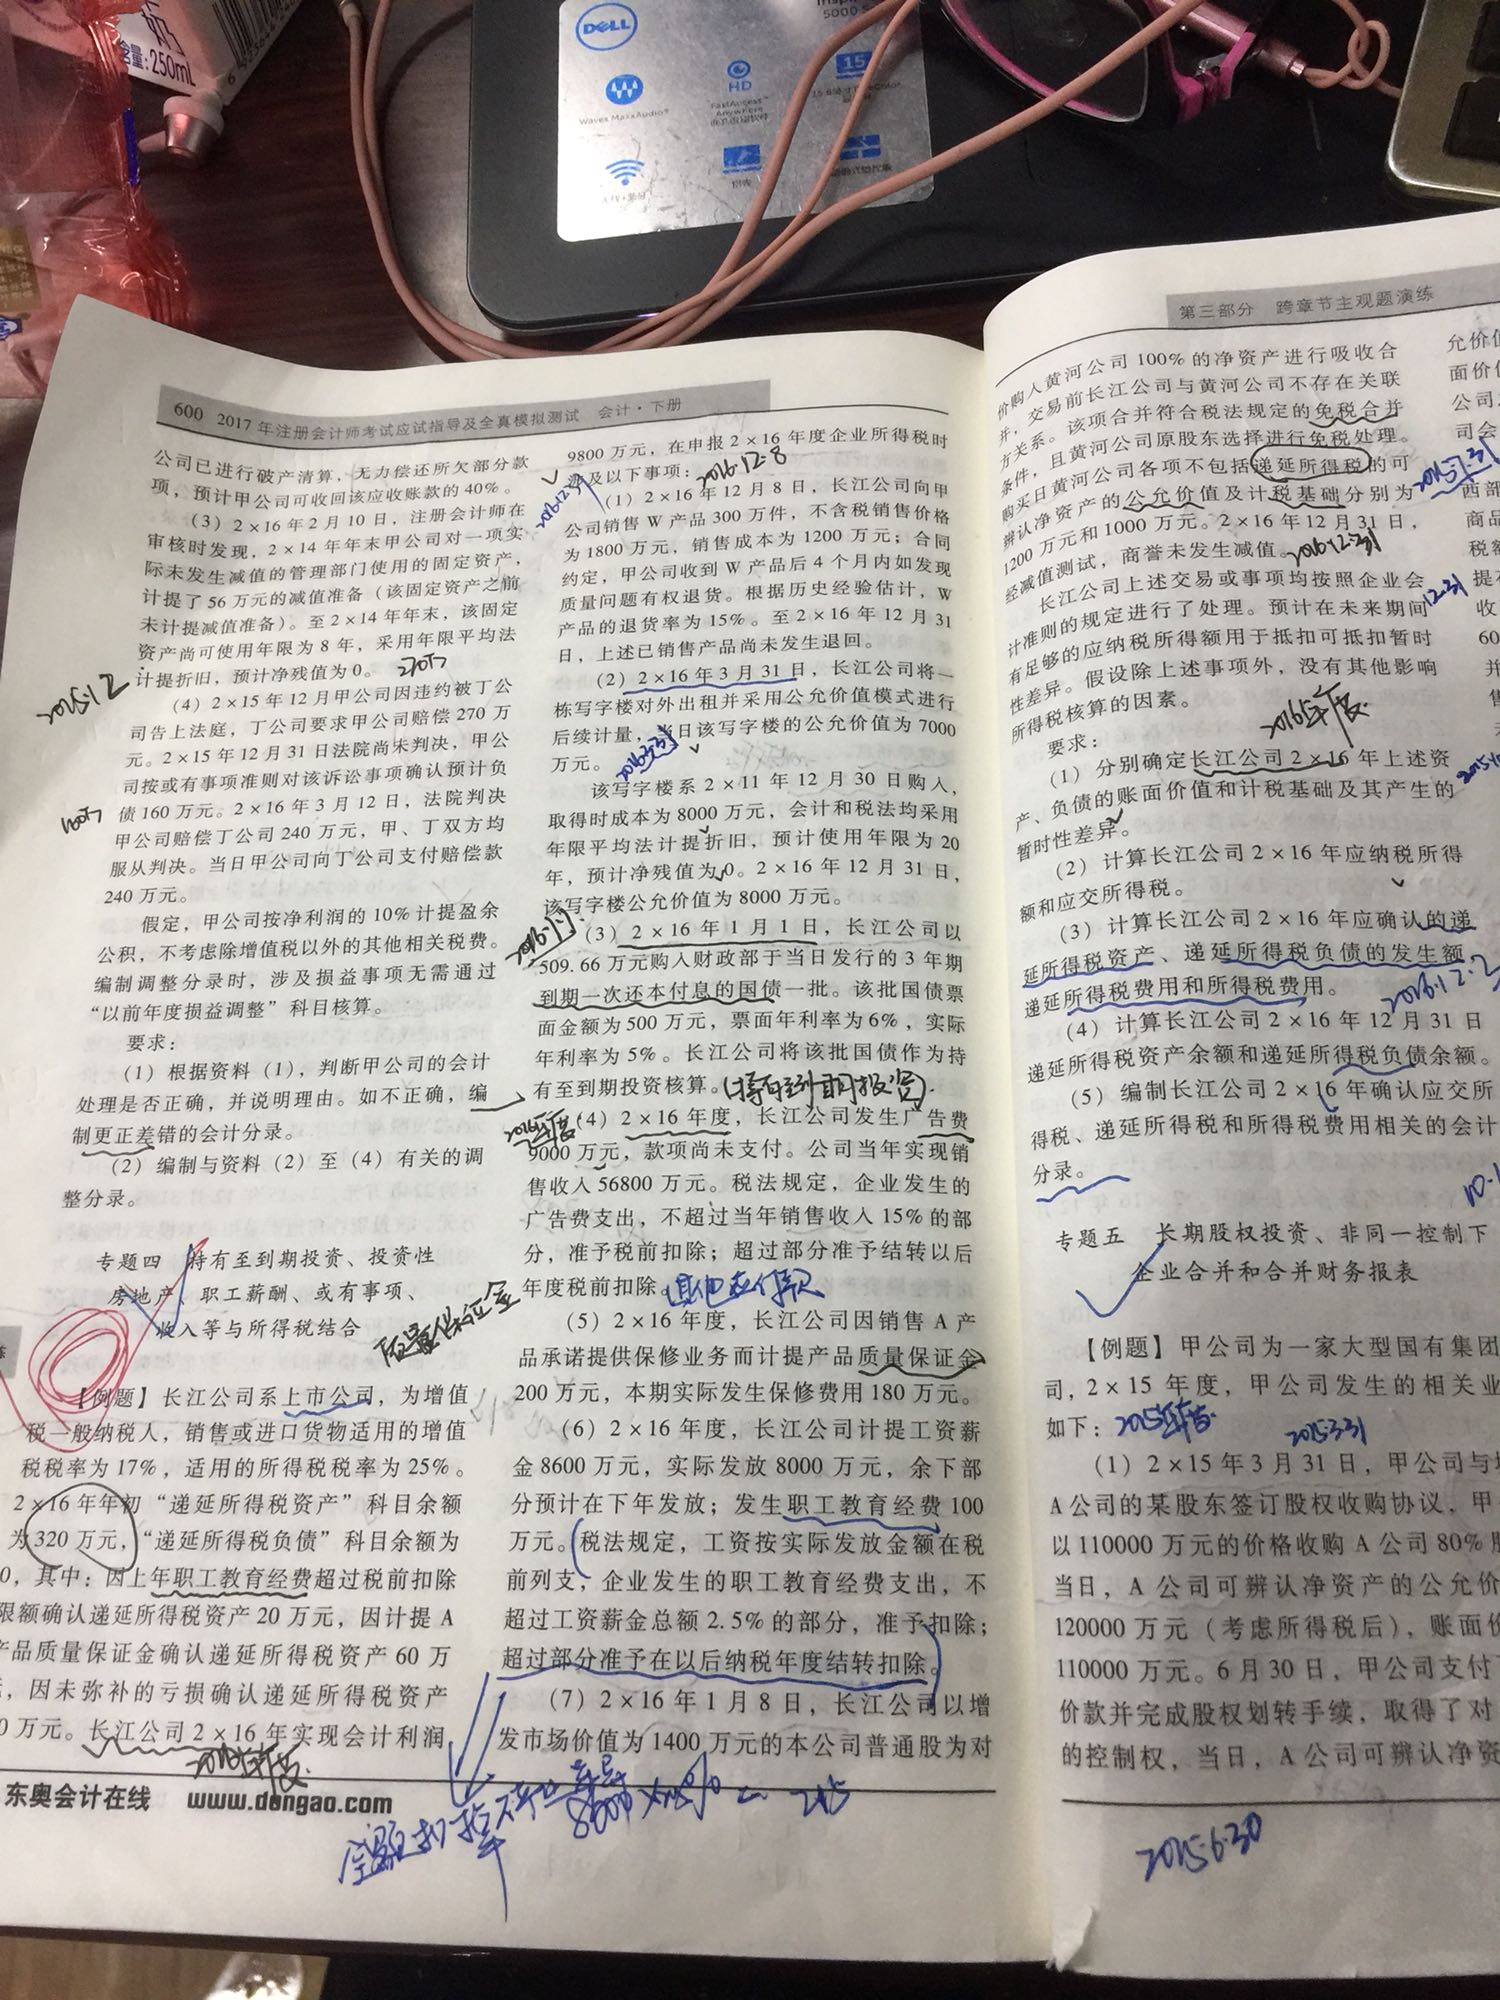 含量:250mL
DELL
5000
HD
15
Waves MaxxAudio®
FastAccess™
Anywhere
600 2017年注册会计师考试应试指导及全真模拟测试 会计·下册
公司已进行破产清算,无力偿还所欠部分款
项,预计甲公司可收回该应收账款的40%。
(3)2×16年2月10日,注册会计师在
审核时发现,2×14年年末甲公司对一项实
际未发生减值的管理部门使用的固定资产,
计提了56万元的减值准备(该固定资产之前
未计提减值准备)。至2×14年年末,该固定
资产尚可使用年限为8年,采用年限平均法
计提折旧,预计净残值为0。
270万
2015.12
(4)2×15年12月甲公司因违约被丁公
司告上法庭,丁公司要求甲公司赔偿270万
元。2×15年12月31日法院尚未判决,甲公
司按或有事项准则对该诉讼事项确认预计负
160万
债160万元。2×16年3月12日,法院判决
甲公司赔偿丁公司240万元,甲、丁双方均
服从判决。当日甲公司向丁公司支付赔偿款
240万元。
假定,甲公司按净利润的10%计提盈余
公积,不考虑除增值税以外的其他相关税费。
编制调整分录时,涉及损益事项无需通过
“以前年度损益调整”科目核算。
要求:
(1)根据资料(1),判断甲公司的会计
处理是否正确,并说明理由。如不正确,编
制更正差错的会计分录。
(2)编制与资料(2)至(4)有关的调
整分录。
专题四 持有至到期投资、投资性
房地产、职工薪酬、或有事项、
收入等与所得税结合
质量保证金
【例题】长江公司系上市公司,为增值
税一般纳税人,销售或进口货物适用的增值
税税率为17%,适用的所得税税率为25%。
2×16年年初“递延所得税资产”科目余额
为320万元,“递延所得税负债”科目余额为
0,其中:因上年职工教育经费超过税前扣除
限额确认递延所得税资产20万元,因计提A
产品质量保证金确认递延所得税资产60万
,因未弥补的亏损确认递延所得税资产
0万元。长江公司2×16年实现会计利润
2016年度
东奥会计在线 www.dongao.com
9800万元,在申报2×16年度企业所得税时
涉及以下事项:
2016.12.8
(1)2×16年12月8日,长江公司向甲
公司销售W产品300万件,不含税销售价格
为1800万元,销售成本为1200万元;合同
约定,甲公司收到W产品后4个月内如发现
质量问题有权退货。根据历史经验估计,W
产品的退货率为15%。至2×16年12月31
日,上述已销售产品尚未发生退回。
(2)2×16年3月31日,长江公司将一
栋写字楼对外出租并采用公允价值模式进行
后续计量,当日该写字楼的公允价值为7000
万元。
2016.3.31
该写字楼系2×11年12月30日购入,
取得时成本为8000万元,会计和税法均采用
年限平均法计提折旧,预计使用年限为20
年,预计净残值为0。2×16年12月31日,
该写字楼公允价值为8000万元。
2016.1.1
(3)2×16年1月1日,长江公司以
509.66万元购入财政部于当日发行的3年期
到期一次还本付息的国债一批。该批国债票
面金额为500万元,票面年利率为6%,实际
年利率为5%。长江公司将该批国债作为持
有至到期投资核算。
(持有到期投资)
2016年度
(4)2×16年度,长江公司发生广告费
9000万元,款项尚未支付。公司当年实现销
售收入56800万元。税法规定,企业发生的
广告费支出,不超过当年销售收入15%的部
分,准予税前扣除;超过部分准予结转以后
年度税前扣除。
其他应付款
(5)2×16年度,长江公司因销售A产
品承诺提供保修业务而计提产品质量保证金
200万元,本期实际发生保修费用180万元。
(6)2×16年度,长江公司计提工资薪
金8600万元,实际发放8000万元,余下部
分预计在下年发放;发生职工教育经费100
万元。税法规定,工资按实际发放金额在税
前列支,企业发生的职工教育经费支出,不
超过工资薪金总额2.5%的部分,准予扣除;
超过部分准予在以后纳税年度结转扣除。
(7)2×16年1月8日,长江公司以增
发市场价值为1400万元的本公司普通股为对
第三部分 跨章节主观题演练
价购入黄河公司100%的净资产进行吸收合
并,交易前长江公司与黄河公司不存在关联
方关系。该项合并符合税法规定的免税合并
条件,且黄河公司原股东选择进行免税处理。
购买日黄河公司各项不包括递延所得税的可
辨认净资产的公允价值及计税基础分别为
1200万元和1000万元。2×16年12月31日,
经减值测试,商誉未发生减值。
2016.12.31
长江公司上述交易或事项均按照企业会
计准则的规定进行了处理。预计在未来期间
有足够的应纳税所得额用于抵扣可抵扣暂时
性差异。假设除上述事项外,没有其他影响
所得税核算的因素。
2016年度
要求:
(1)分别确定长江公司2×16年上述资
产、负债的账面价值和计税基础及其产生的
暂时性差异。
(2)计算长江公司2×16年应纳税所得
额和应交所得税。
(3)计算长江公司2×16年应确认的递
延所得税资产、递延所得税负债的发生额、
递延所得税费用和所得税费用。
(4)计算长江公司2×16年12月31日
递延所得税资产余额和递延所得税负债余额。
(5)编制长江公司2×16年确认应交所
得税、递延所得税和所得税费用相关的会计
分录。
专题五 长期股权投资、非同一控制下
企业合并和合并财务报表
【例题】甲公司为一家大型国有集团
司,2×15年度,甲公司发生的相关业
如下:
2015年度
2015.3.31
(1)2×15年3月31日,甲公司与
A公司的某股东签订股权收购协议,甲
以110000万元的价格收购A公司80%
当日,A公司可辨认净资产的公允价
120000万元(考虑所得税后),账面价
110000万元。6月30日,甲公司支付
价款并完成股权划转手续,取得了对
的控制权,当日,A公司可辨认净资
2015.6.30
允价值
面价值
公司
司会
12.31
西部
商品
税额
提
收
60
并
售